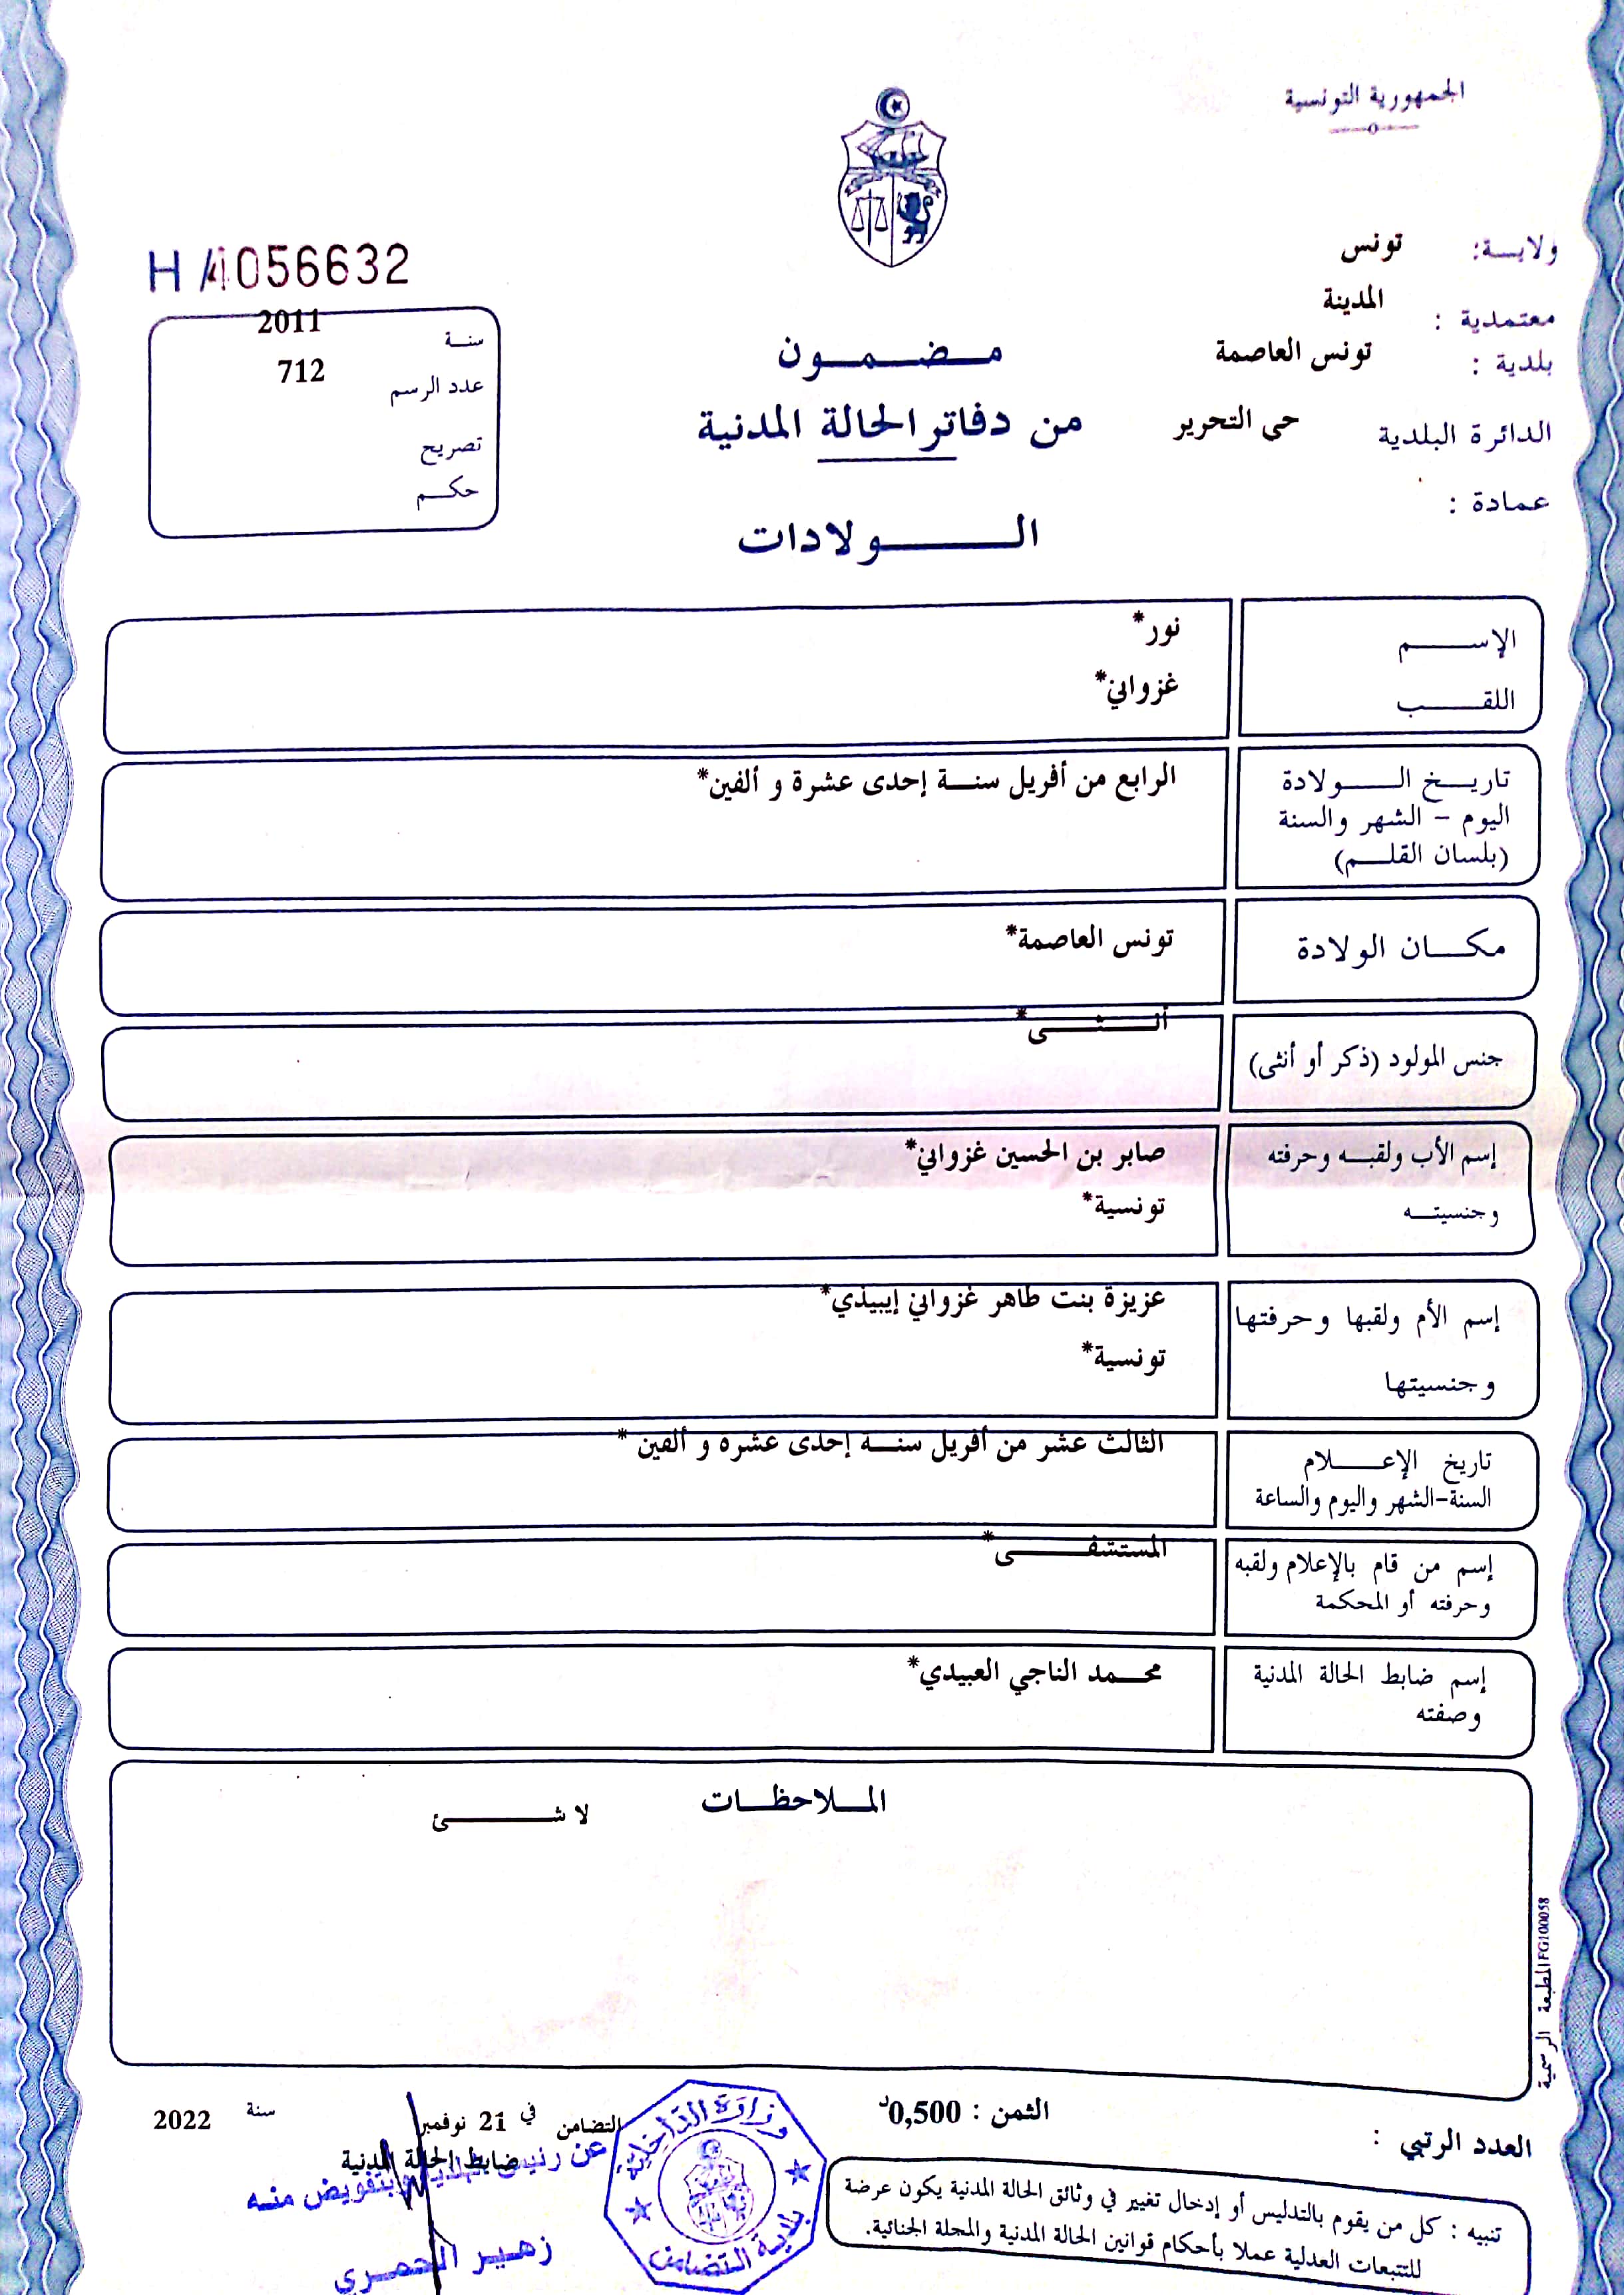 الجمهورية التونسية
ولايـة: تونس
معتمدية : المدينة
بلدية : تونس العاصمة
الدائرة البلدية حى التحرير
عمادة :
H/4056632
سنة 2011
عدد الرسم 712
تصريح
حكم
مضمون
من دفاتر الحالة المدنية
الولادات
الإسم نور*
اللقب غزواني*
تاريخ الولادة الرابع من أفريل سنة إحدى عشرة و ألفين*
اليوم - الشهر والسنة
(بلسان القلم)
مكان الولادة تونس العاصمة*
جنس المولود (ذكر أو أنثى) أنثى*
إسم الأب ولقبه وحرفته صابر بن الحسين غزواني*
وجنسيته تونسية*
إسم الأم ولقبها وحرفتها عزيزة بنت طاهر غزواني إيبيذي*
وجنسيتها تونسية*
تاريخ الإعلام الثالث عشر من أفريل سنة إحدى عشرة و ألفين *
السنة-الشهر واليوم والساعة
إسم من قام بالإعلام ولقبه المستشفى*
وحرفته أو المحكمة
إسم ضابط الحالة المدنية محمد الناجي العبيدي*
وصفته
الملاحظات
لا شئ
المطبعة الرسمية FG100058
العدد الرتبي :
الثمن : 0,500د
التضامن في 21 نوفمبر سنة 2022
ضابط الحالة المدنية
عن رئيس البلدية وبتفويض منه
زهير الحمري
وزارة الداخلية
بلدية التضامن
تنبيه : كل من يقوم بالتدليس أو إدخال تغيير في وثائق الحالة المدنية يكون عرضة
للتتبعات العدلية عملا بأحكام قوانين الحالة المدنية والمجلة الجنائية.